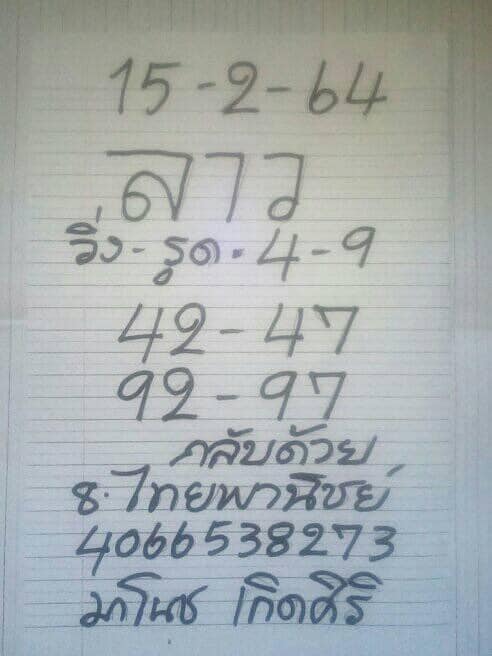 15-2-64
ลาว
วิ่ง-รูด.4-9
42-47
92-97
กลับด้วย
ธ.ไทยพานิชย์
4066538273
มาโนช เกิดศิริ